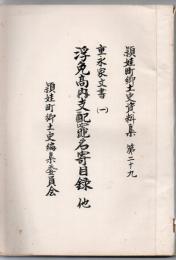 頴娃町郷土史資料集 第二十九
重永家文書（一）
浮免高内支配竈名寄目録 他
頴娃町郷土史編集委員会